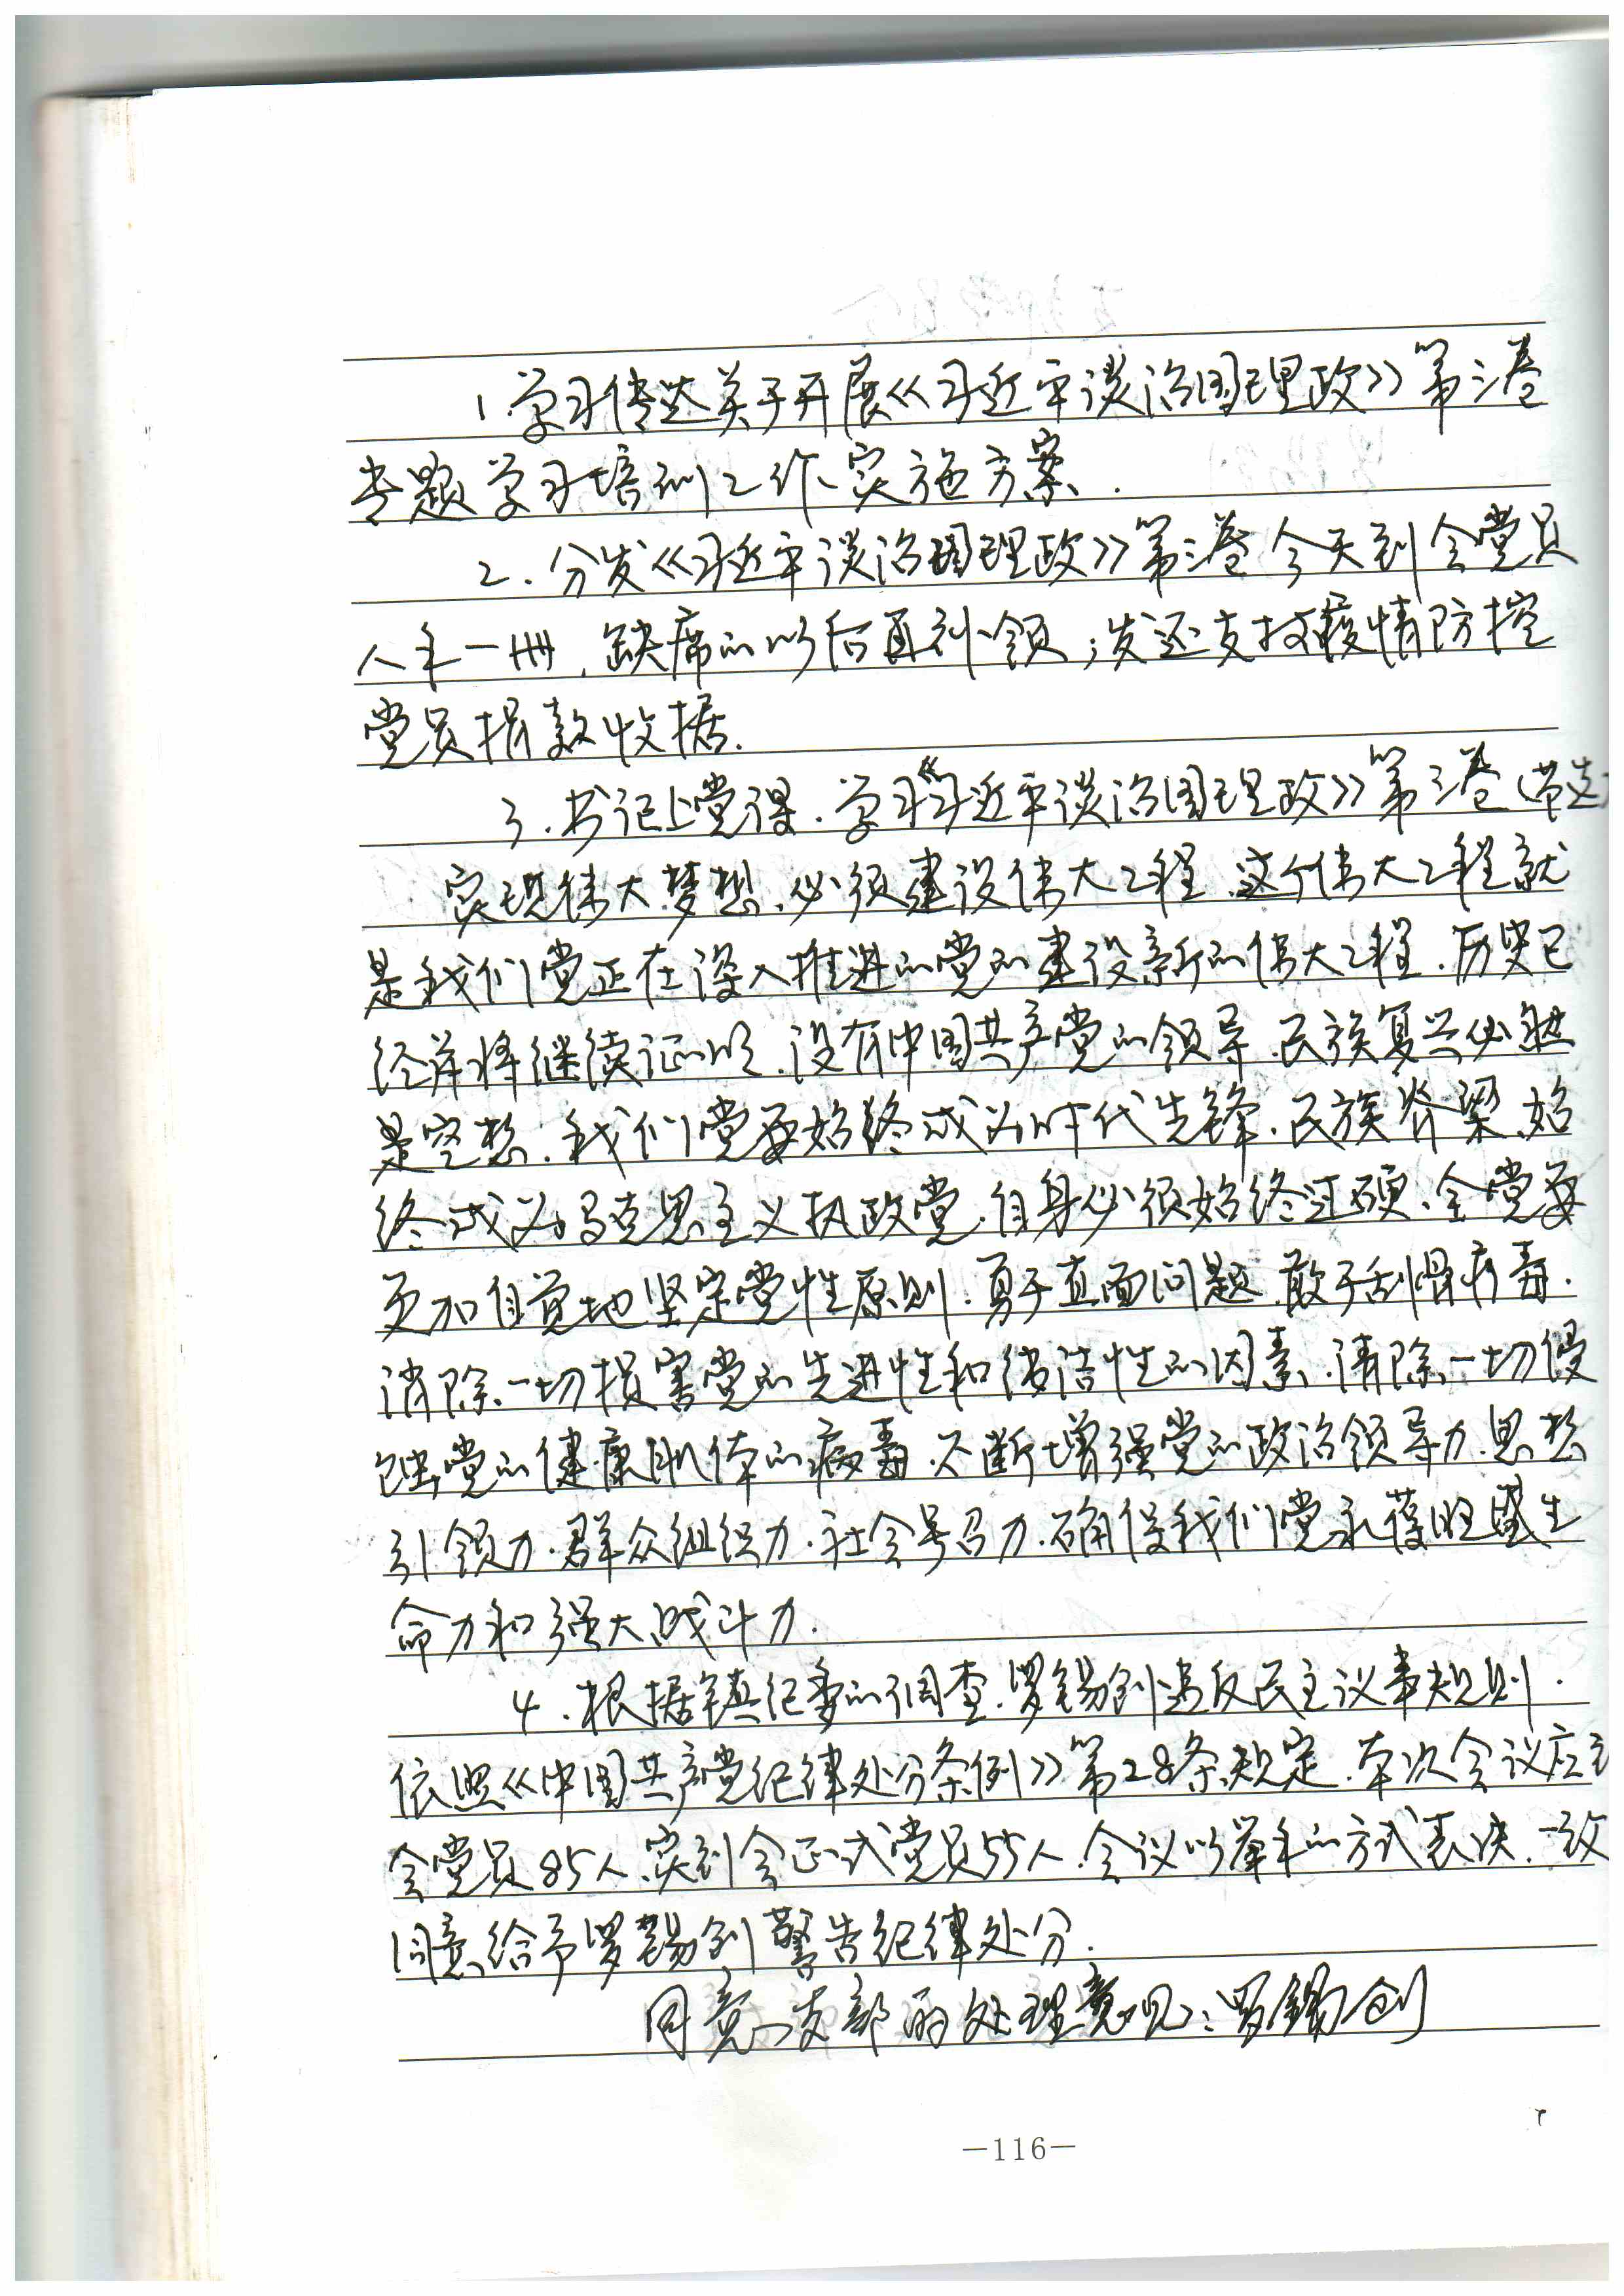 1.学习传达关于开展《习近平谈治国理政》第三卷
专题学习培训工作实施方案.
2.分发《习近平谈治国理政》第三卷今天到会党员
人手一册,缺席的以后再利领;发还支援疫情防控
党员捐款收据.
3.书记上党课.学习《习近平谈治国理政》第三卷(节选
实现伟大梦想,必须建设伟大工程.这个伟大工程就
是我们党正在深入推进的党的建设新的伟大工程.历史已
经并将继续证明,没有中国共产党的领导,民族复兴必然
是空想.我们党要始终成为时代先锋、民族脊梁,始
终成为马克思主义执政党,自身必须始终过硬.全党要
更加自觉地坚定党性原则,勇于直面问题,敢于刮骨疗毒.
消除一切损害党的先进性和纯洁性的因素.清除一切侵
蚀党的健康肌体的病毒.不断增强党的政治领导力.思想
引领力.群众组织力.社会号召力.确保我们党永葆旺盛生
命力和强大战斗力.
4.根据镇纪委的调查.罗锡创违反民主议事规则.
依照《中国共产党纪律处分条例》第28条规定.本次会议应到
会党员85人,实到会正式党员55人.会议以举手的方式表决.一致
同意给予罗锡创警告纪律处分.
同意支部的处理意见:罗锡创
—116—